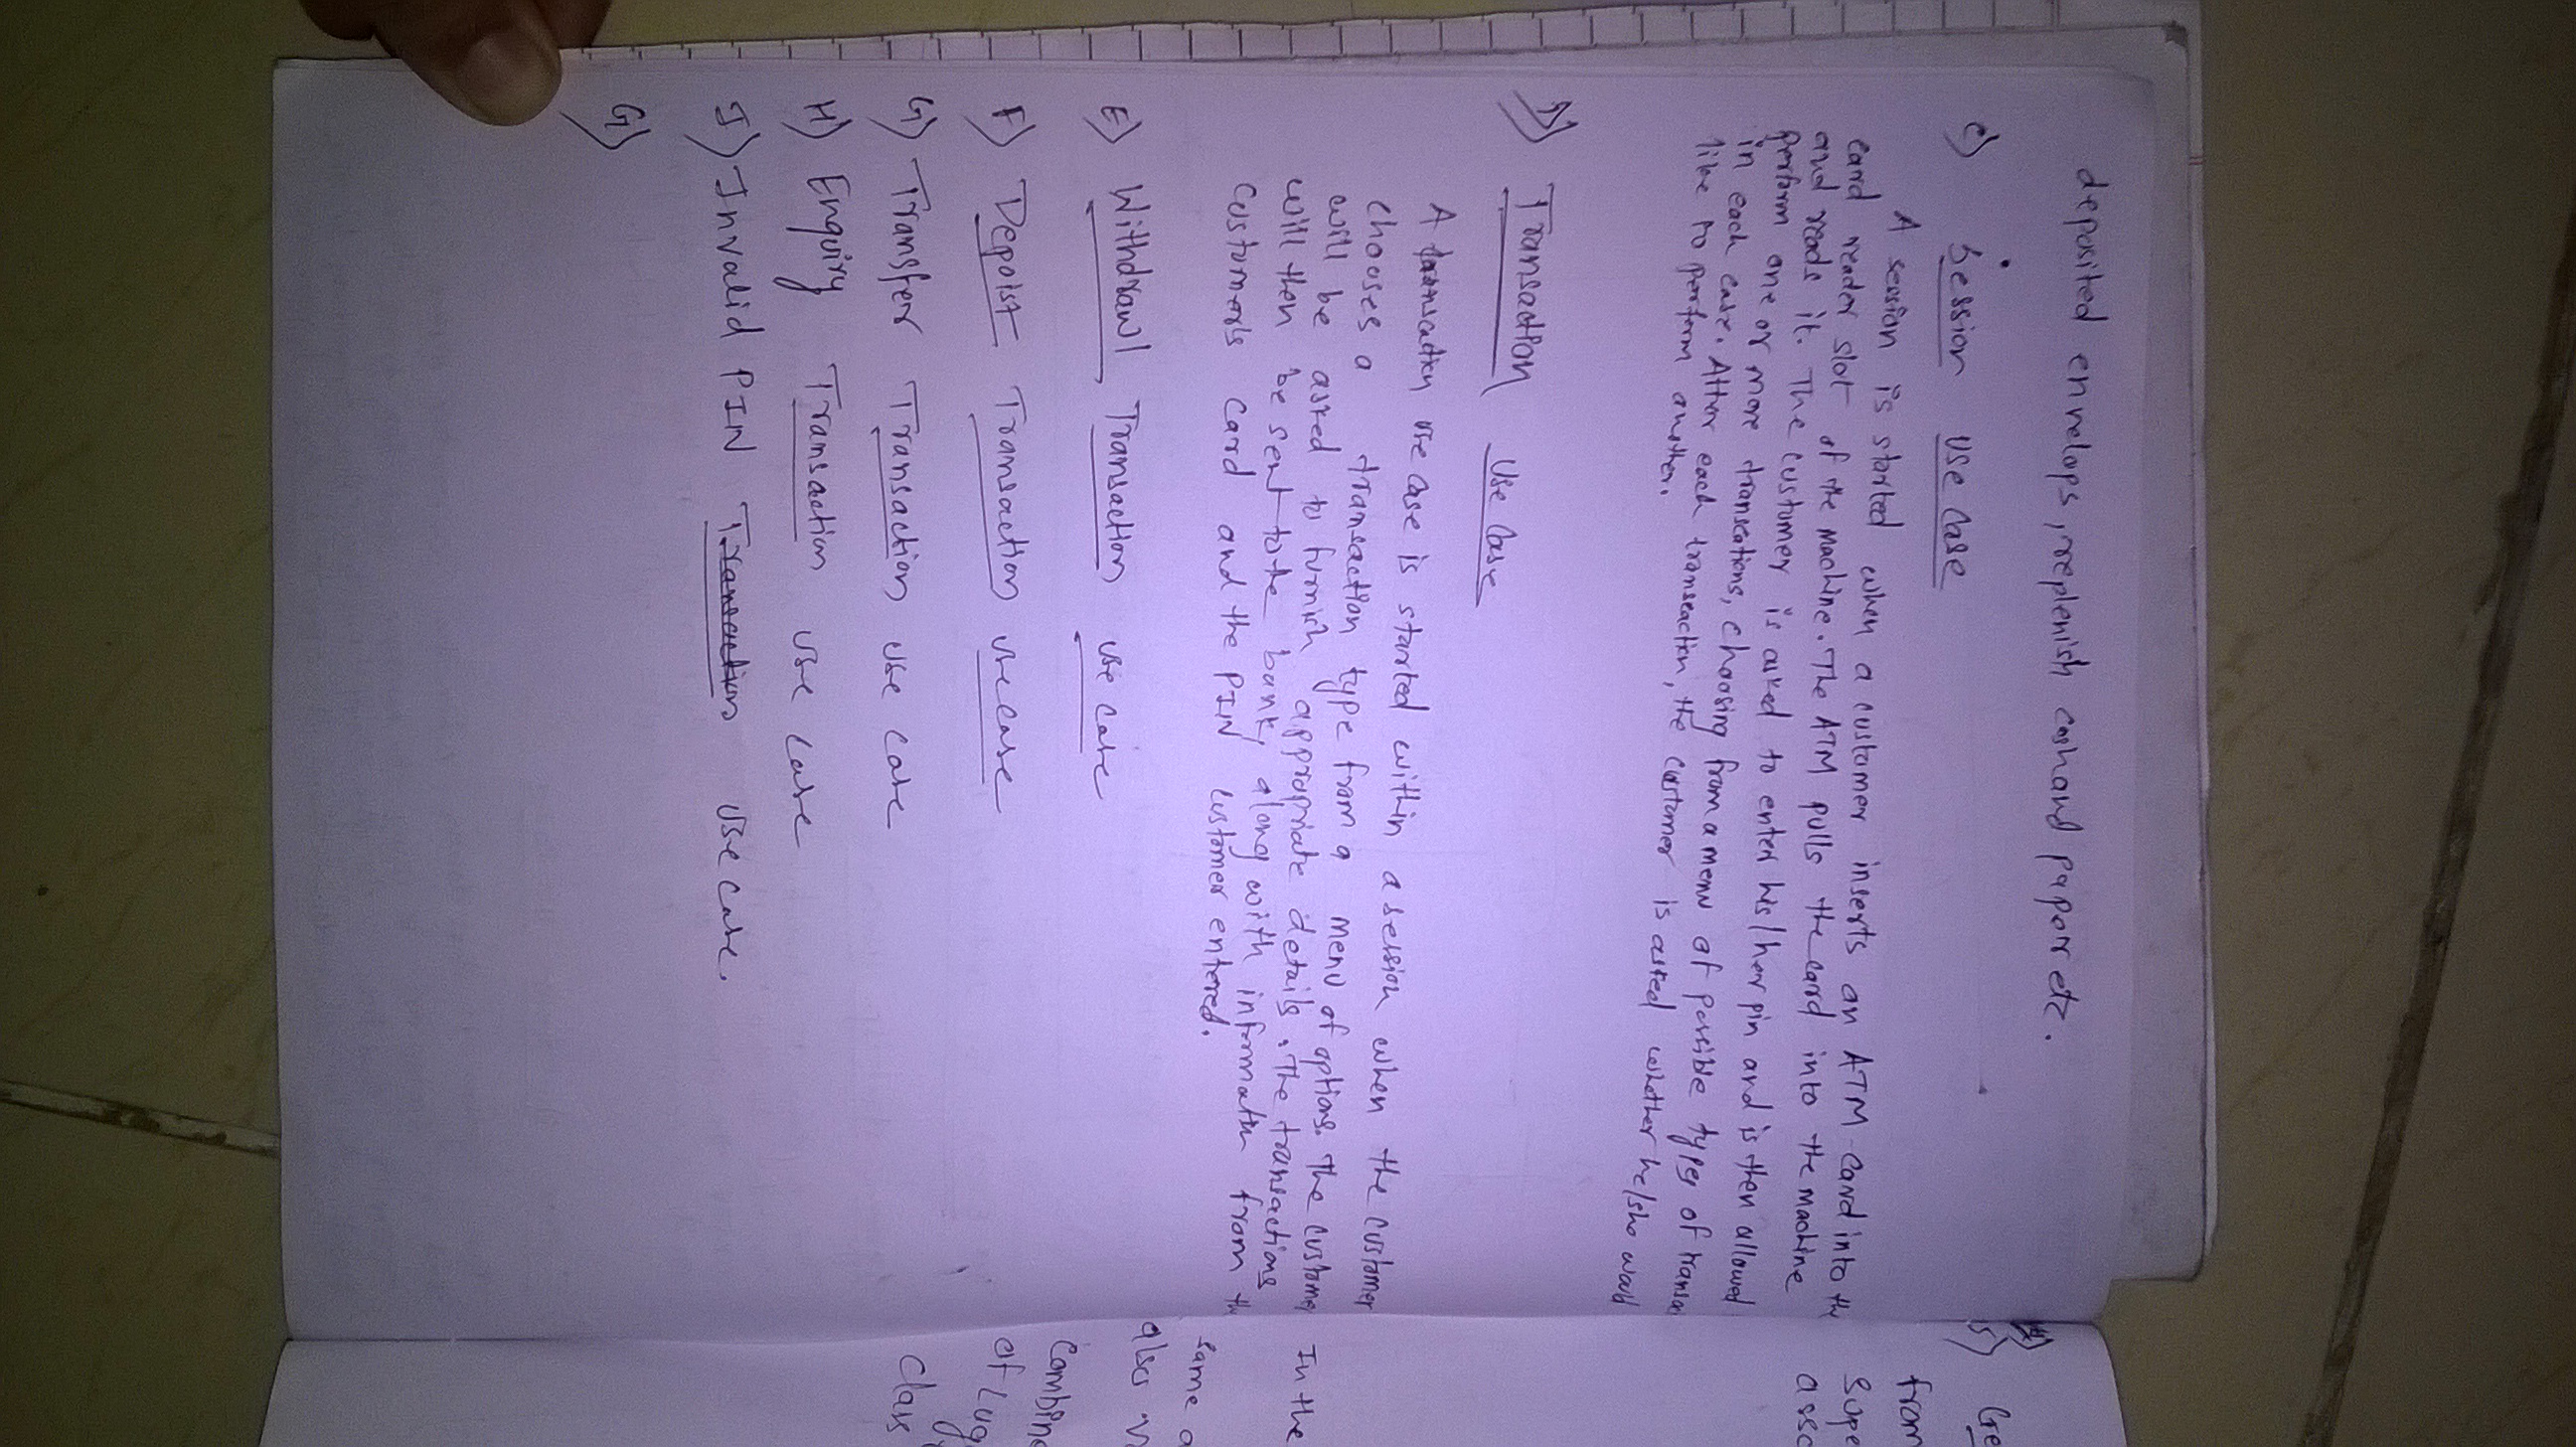 deposited envelops, replenish cash and paper etc.
C) Session Use Case
A session is started when a customer inserts an ATM card into th
card reader slot of the machine. The ATM pulls the card into the machine
and reads it. The customer is asked to enter his/her pin and is then allowed
perform one or more transactions, choosing from a menu of possible types of transa
in each case. After each transaction, the customer is asked whether he/she would
like to perform another.
D) Transaction Use Case
A transaction use case is started within a session when the customer
chooses a transaction type from a menu of options. The customer
will be asked to furnish appropriate details. The transactions
will then be sent to the bank, along with information from th
customers card and the PIN customer entered.
E) Withdrawl Transaction use case
F) Depoist Transaction use case
G) Transfer Transaction use case
H) Enquiry Transaction use case
I) Invalid PIN Transaction use case.
G)
5) Ge
from
supe
asso
In the
same a
also
Combine
of
Class